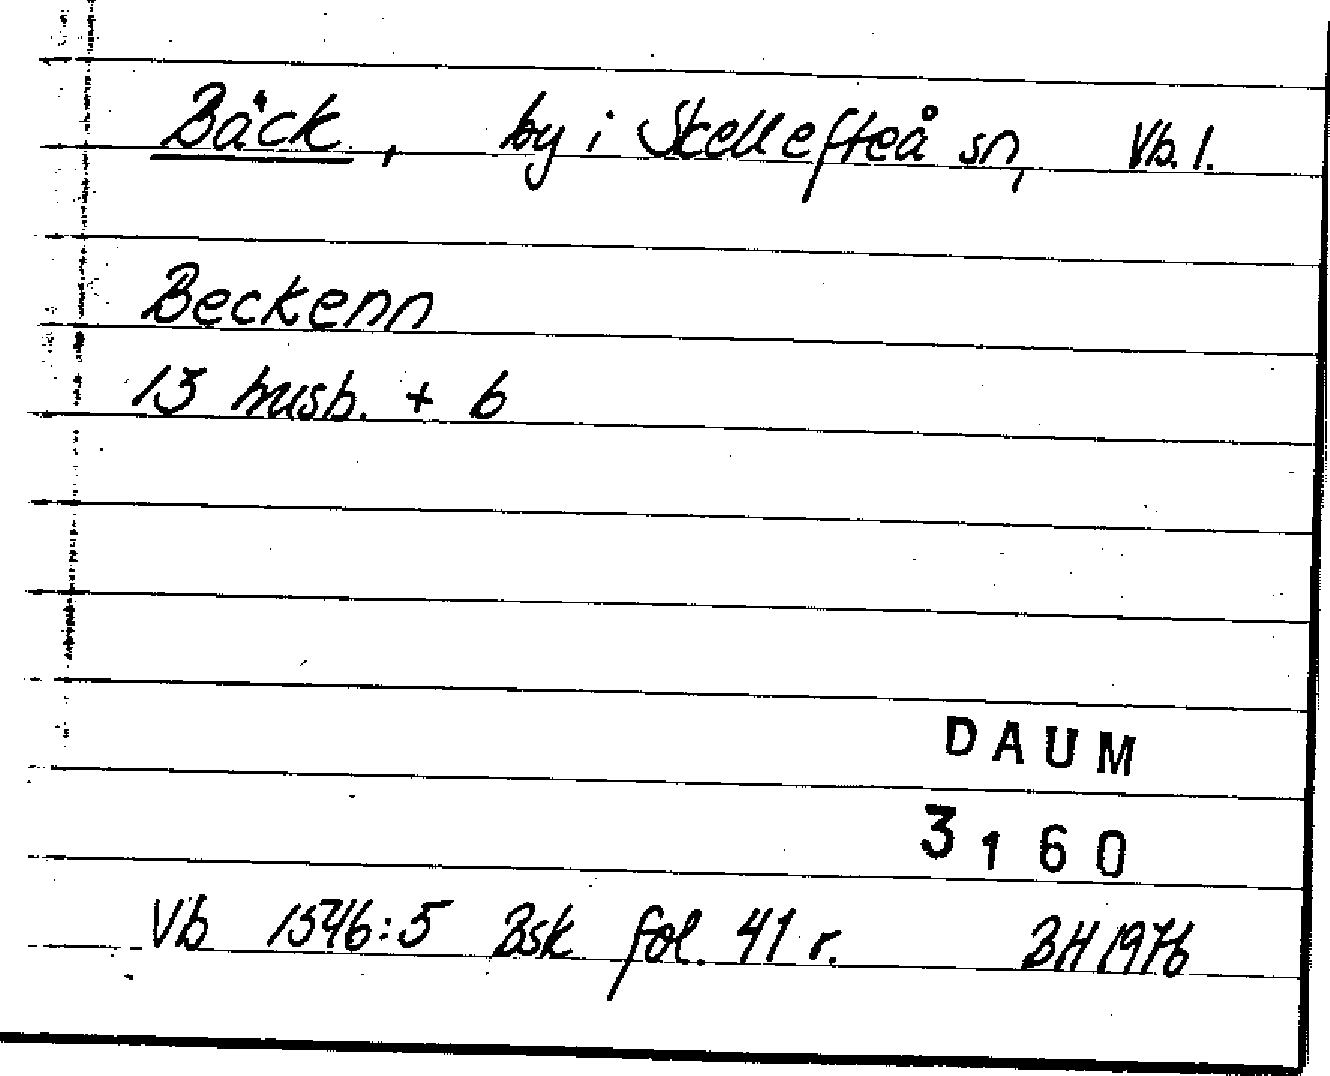 Bäck, by i Skellefteå sn, Vb. l.
Beckenn
13 husb. + 6
DAUM
3160
Vb 1546:5 Bsk fol. 41 r. BH 1976